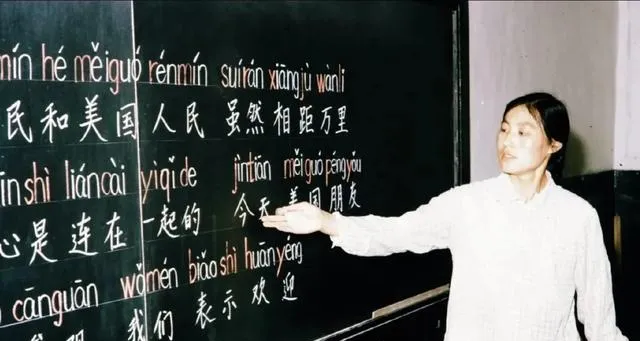 mín hé měiguó rénmín suírán xiāngjù wànlǐ
民和美国人民 虽然相距万里
īnshì liáncài yìqǐde jīntiān měiguó péngyǒu
心是连在一起的 今天美国朋友
cānguān wǒmén biǎoshì huānyéng
我们表示欢迎